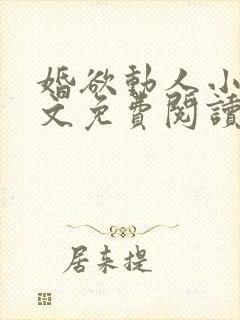 婚欲動人小
文免費閱讀
居來提